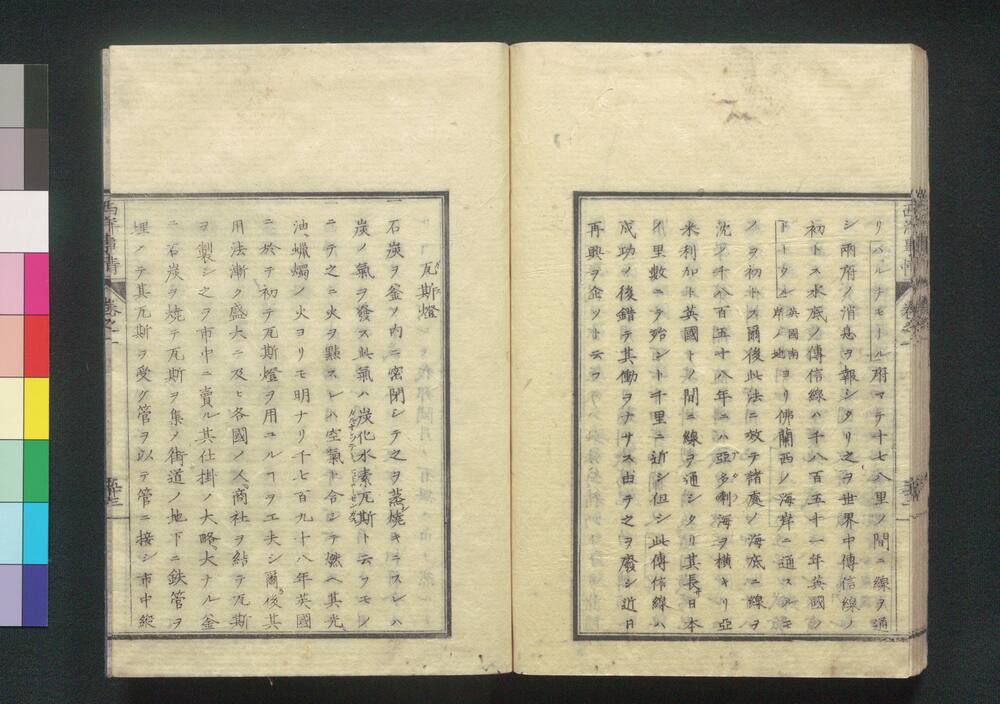 リハ「ルチモール」府マテ十七八里ノ間ニ線ヲ通
シ両府ノ消息ヲ報シタリ之ヲ世界中傳信線ノ
初トス水底ノ傳信線ハ千八百五十一年英國
「ドーウル」英國南岸ノ地ヨリ佛蘭西ノ海岸ニ通スルモ
ノヲ初トス爾後此法ニ效テ諸處ノ海底ニ線ヲ
沈メ千八百五十八年ニハ亞多喇海ヲ横キリ亞
米利加ト英國トノ間ニ線ヲ通シタリ其長サ日本
ノ里数ニテ殆ント千里ニ近シ但シ此傳信線ハ
成功ノ後錯テ其働ヲナサス由テ之ヲ廢シ近日
再興ヲ企ツト云フ
瓦斯燈
一 石炭ヲ釜ノ内ニ密閉シテ之ヲ蒸焼キニスレハ
炭ノ氣ヲ發ス此氣ハ炭化水素瓦斯ト云フモノ
ニテ之ニ火ヲ點スレハ空氣ト合シテ燃ヘ其光
油蠟燭ノ火ヨリモ明ナリ千七百九十八年英國
ニ於テ初テ瓦斯燈ヲ用ユルコヲ工夫シ爾後其
用法漸ク盛大ニ及ヒ各國ノ人商社ヲ結テ瓦斯
ヲ製シ之ヲ市中ニ賣ル其仕掛ノ大略大ナル釜
ニ石炭ヲ焼テ瓦斯ヲ集メ街道ノ地下ニ鉄管ヲ
埋メテ其瓦斯ヲ受ク管ヲ以テ管ニ接シ市中縦
西洋事情
卷之一